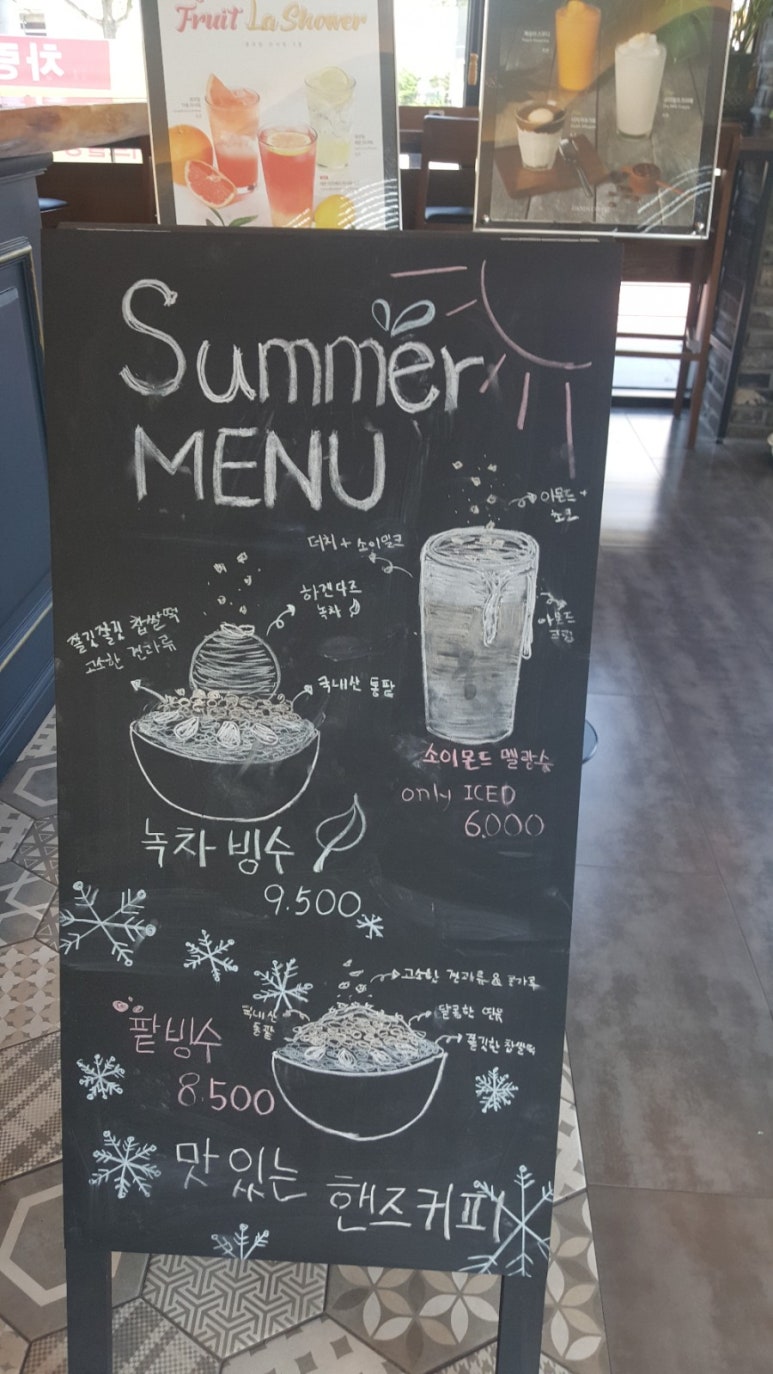 Fruit La Shower
Summer
MENU
아몬드 +
초코
더치 + 소이밀크
하겐다즈
녹차
쫄깃쫄깃 찹쌀떡
고소한 견과류
국내산 통팥
아몬드
소이몬드 멜랑슈
only ICED
6.000
녹차 빙수
9.500
고소한 견과류 & 콩가루
국내산
통팥
달콤한 연유
쫄깃한 찹쌀떡
팥빙수
8.500
맛있는 핸즈커피